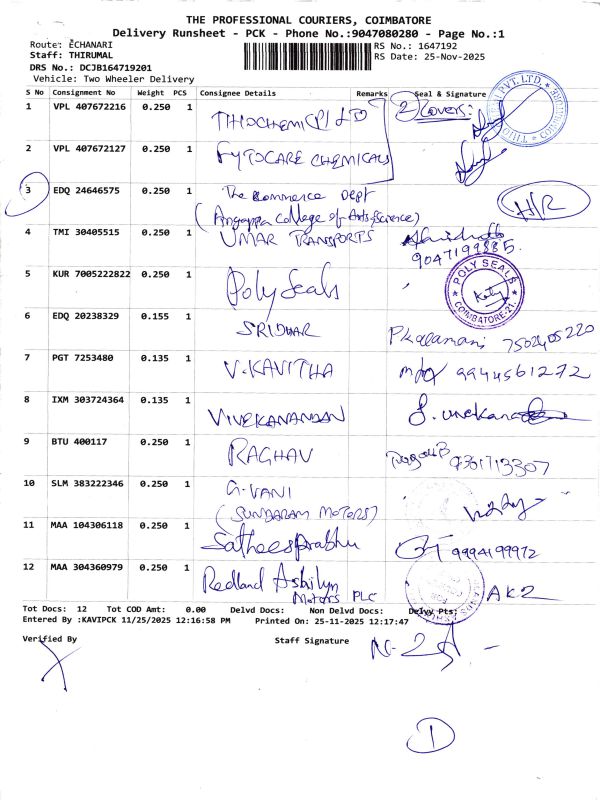 THE PROFESSIONAL COURIERS, COIMBATORE
Delivery Runsheet - PCK - Phone No.:9047080280 - Page No.:1
Route: ECHANARI
RS No.: 1647192
Staff: THIRUMAL
RS Date: 25-Nov-2025
DRS No.: DCJB164719201
Vehicle: Two Wheeler Delivery
S No Consignment No Weight PCS Consignee Details Remarks Seal & Signature
1 VPL 407672216 0.250 1 THIOCHEM (P) LTD 2 Covers:
2 VPL 407672127 0.250 1 FYTOCARE CHEMICALS
3 EDQ 24646575 0.250 1 The Commerce Dept H/R
(Angappa College of Arts & Science)
4 TMI 30405515 0.250 1 UMAR TRANSPORTS
9047199885.
5 KUR 7005222822 0.250 1 Poly Seals POLY SEALS COIMBATORE-21.
6 EDQ 20238329 0.155 1 SRIDHAR 7502405220
7 PGT 7253480 0.135 1 V.KAVITHA 9944561272
8 IXM 303724364 0.135 1 VIVEKANANDAN
9 BTU 400117 0.250 1 RAGHAV 9361713307
10 SLM 383222346 0.250 1 G.VANI
(SUNDARAM MOTORS)
11 MAA 104306118 0.250 1 Satheesprabhu 9994199972
12 MAA 304360979 0.250 1 Redland Ashilyn
Motors PLC
AK2
Tot Docs: 12 Tot COD Amt: 0.00 Delvd Docs: Non Delvd Docs: Delvy Pts:
Entered By :KAVIPCK 11/25/2025 12:16:58 PM Printed On: 25-11-2025 12:17:47
Verified By Staff Signature
1